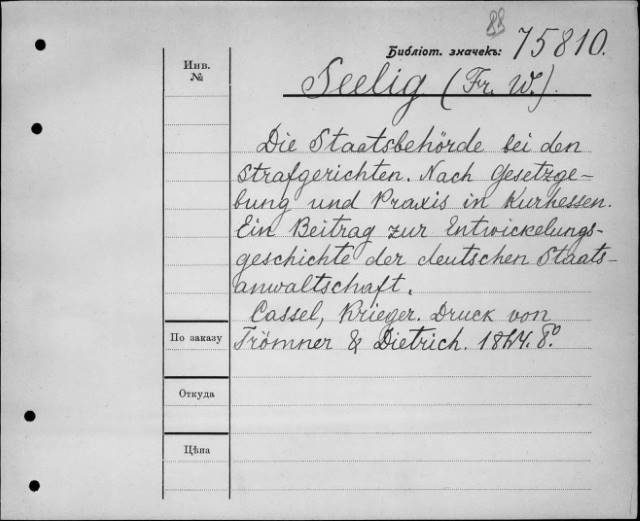 88
Библіот. значекъ: 75810.
Инв.
№
Seelig (Fr. W.).
Die Staatsbehörde bei den
Strafgerichten. Nach Gesetzge-
bung und Praxis in Kurhessen.
Ein Beitrag zur Entwickelungs-
geschichte der deutschen Staats-
anwaltschaft.
Cassel, Krieger. Druck von
По заказу
Trömner & Dietrich. 1864. 8º
Откуда
Цѣна